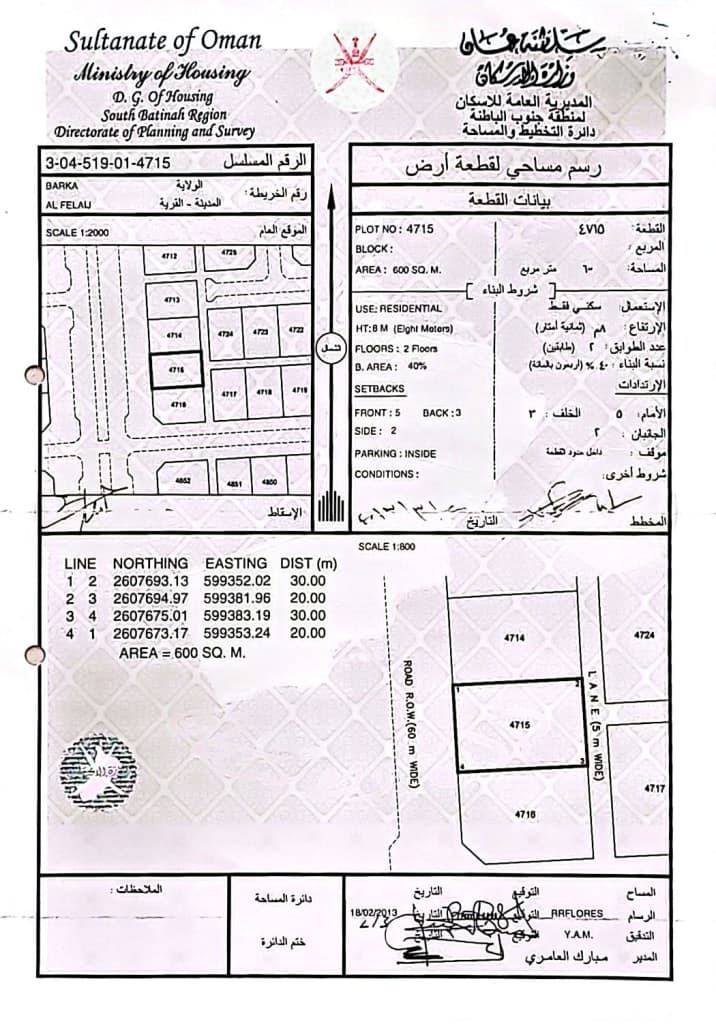 Sultanate of Oman
Ministry of Housing
D. G. Of Housing
South Batinah Region
Directorate of Planning and Survey
سلطنة عمان
وزارة الإسكان
المديرية العامة للاسكان
لمنطقة جنوب الباطنة
دائرة التخطيط والمساحة
3-04-519-01-4715 الرقم المسلسل
BARKA الولاية
رقم الخريطة :
AL FELAIJ المدينة - القرية
SCALE 1:2000 الموقع العام
4712
4713
4714 4724 4723 4722
4715
4716 4717 4718 4719
4852 4851 4850
الإسقاط
الشمال
رسم مساحي لقطعة أرض
بيانات القطعة
PLOT NO : 4715 القطعة : ٤٧١٥
BLOCK : المربع :
AREA : 600 SQ. M. المساحة: ٦٠٠ متر مربع
شروط البناء
USE: RESIDENTIAL الإستعمال: سكني فقط
HT: 8 M (Eight Meters) الإرتفاع : ٨م (ثمانية أمتار)
FLOORS : 2 Floors عدد الطوابق : ٢ (طابقين)
B. AREA : 40% نسبة البناء : ٤٠ % (أربعون بالمائة)
SETBACKS الإرتدادات
FRONT : 5 BACK : 3 الأمام: ٥ الخلف : ٣
SIDE : 2 الجانبان : ٢
PARKING : INSIDE موقف : داخل حدود القطعة
CONDITIONS : شروط أخرى:
المخطط التاريخ
SCALE 1:800
LINE NORTHING EASTING DIST (m)
1 2 2607693.13 599352.02 30.00
2 3 2607694.97 599381.96 20.00
3 4 2607675.01 599383.19 30.00
4 1 2607673.17 599353.24 20.00
AREA = 600 SQ. M.
ROAD R.O.W.(60 m WIDE)
4714
4724
1 2
4715
4 3
LANE (5 m WIDE)
4716
4717
الملاحظات :
دائرة المساحة
ختم الدائرة
المساح التوقيع التاريخ
الرسام RRFLORES التوقيع التاريخ 18/02/2013
التدقيق Y.A.M. التوقيع التاريخ
المدير مبارك العامري